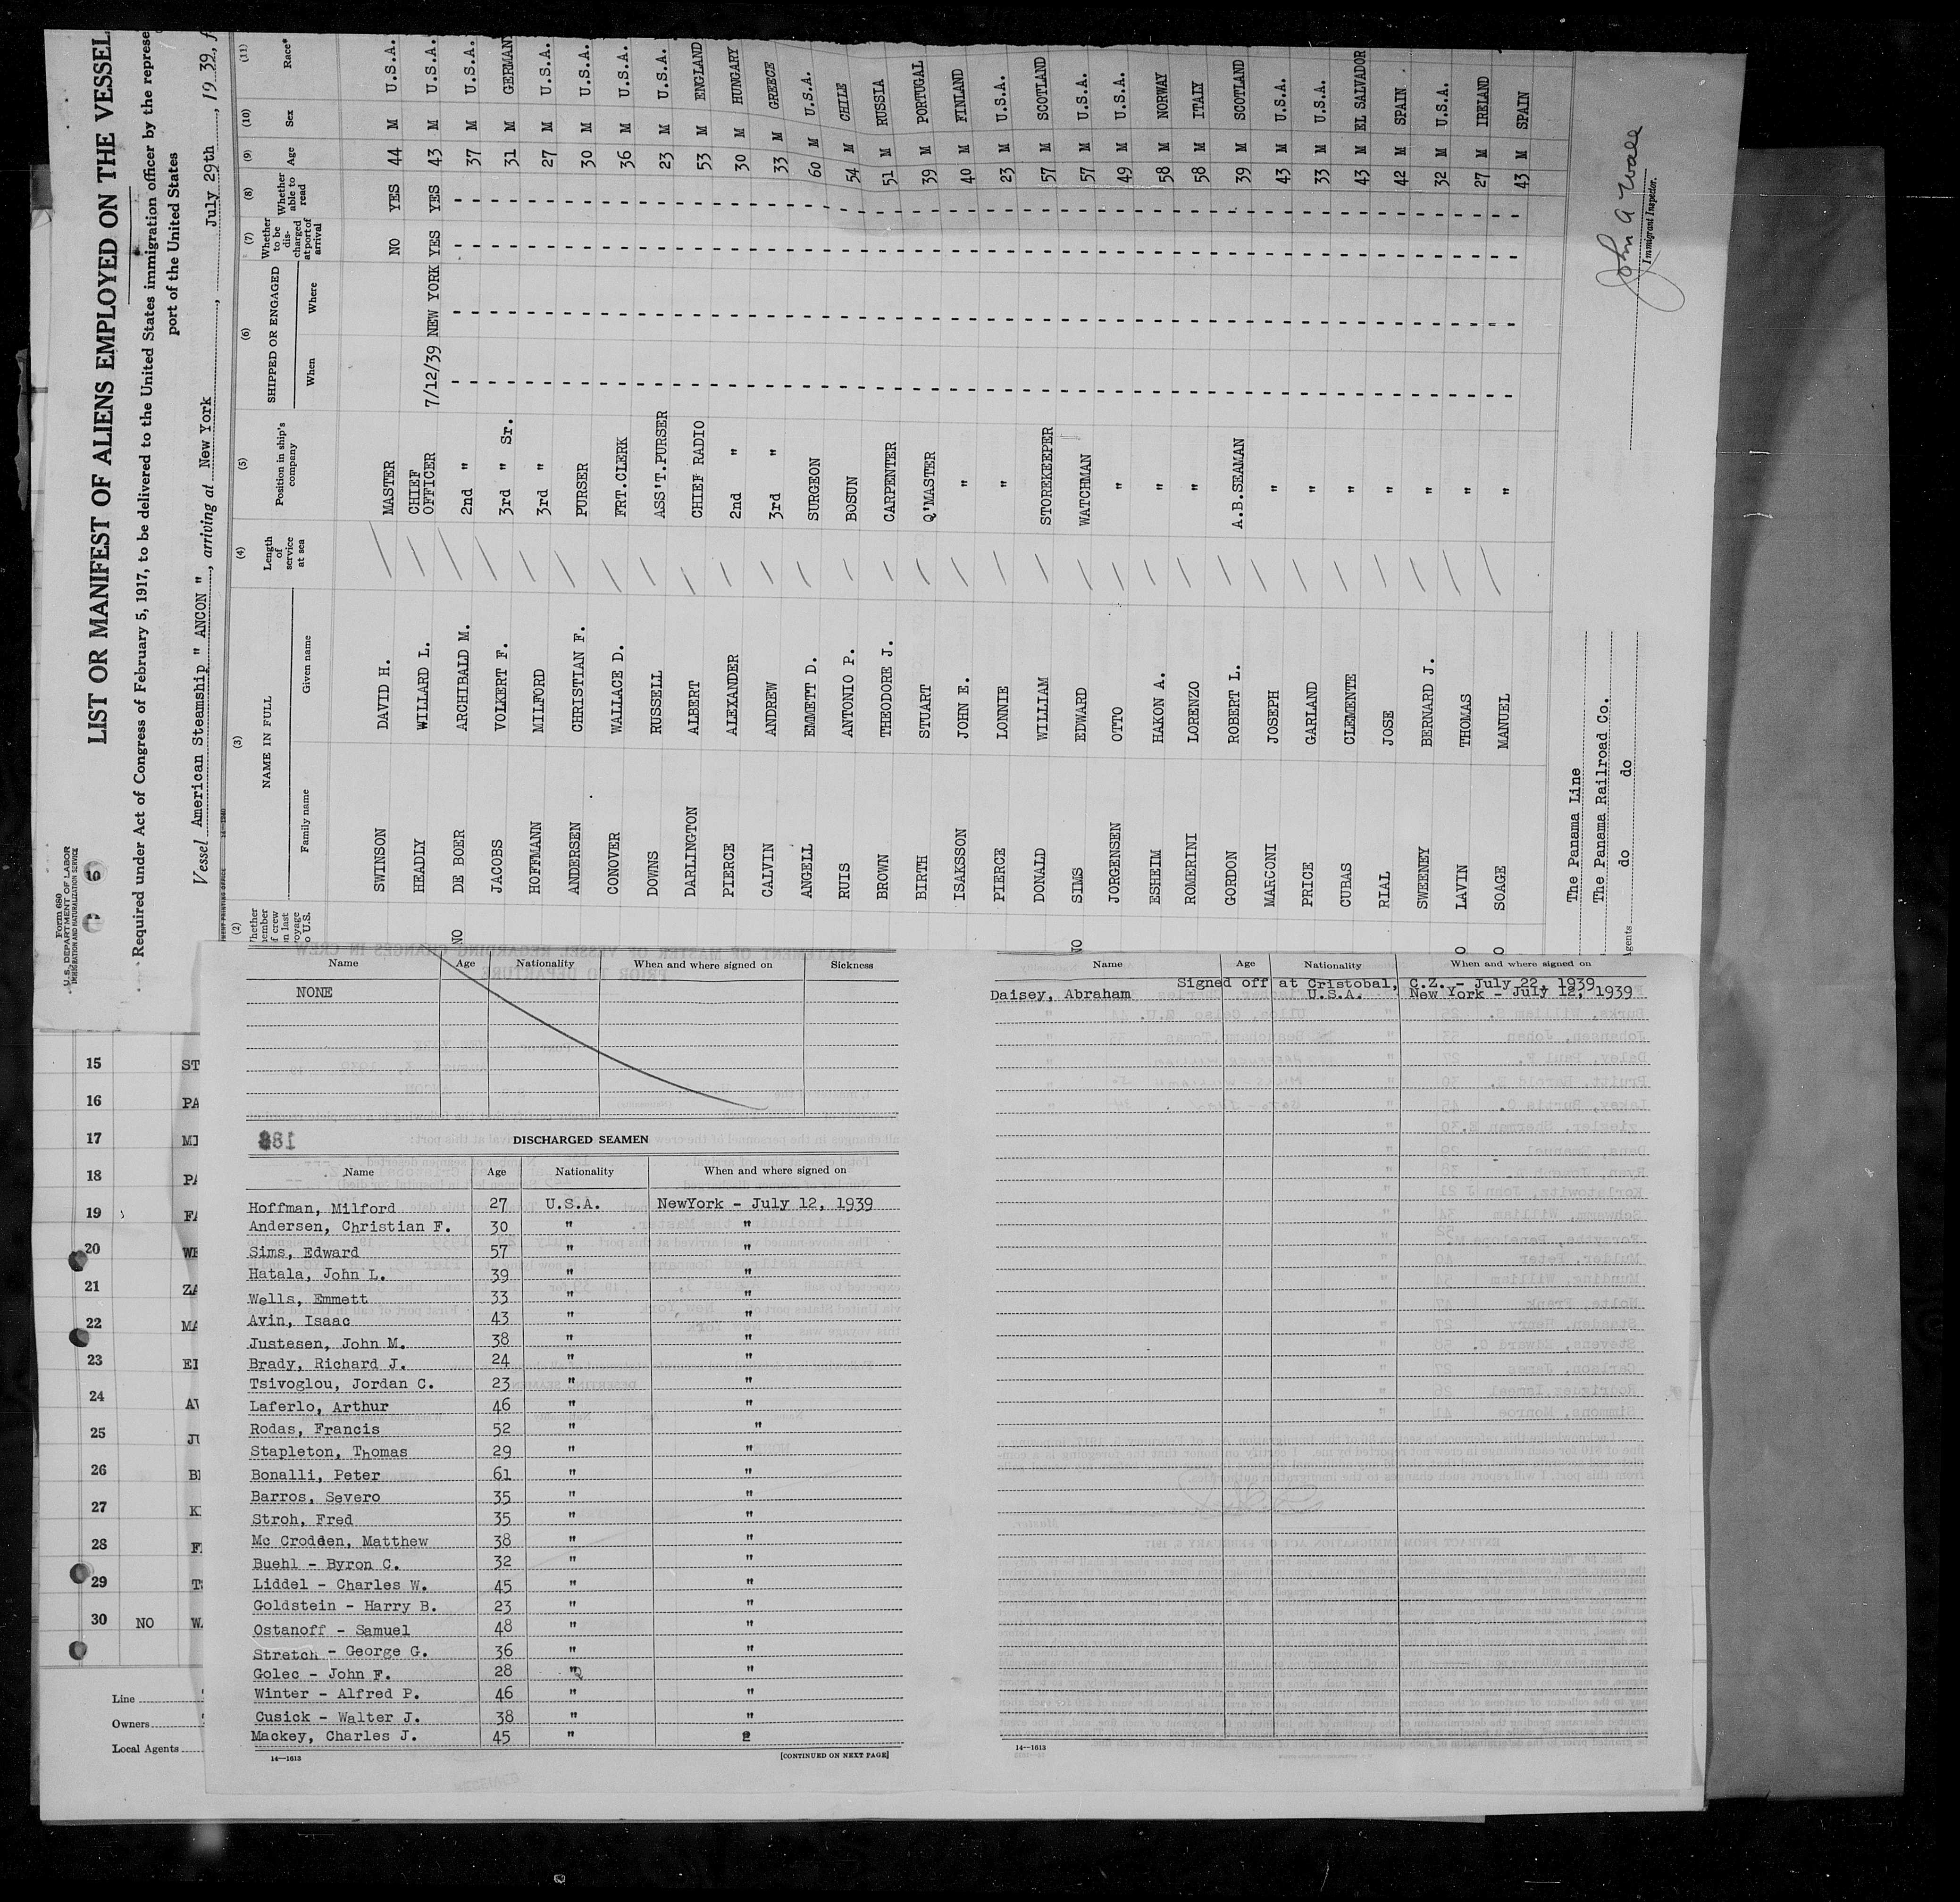 Form 680
U.S. DEPARTMENT OF LABOR
IMMIGRATION AND NATURALIZATION SERVICE
LIST OR MANIFEST OF ALIENS EMPLOYED ON THE VESSEL
Required under Act of Congress of February 5, 1917, to be delivered to the United States immigration officer by the represe
port of the United States
Vessel American Steamship " ANCON ", arriving at New York, July 29th, 1939, f
(2) (3) (4) (5) (6) (7) (8) (9) (10) (11)
NAME IN FULL
Family name Given name
Length of service at sea
Position in ship's company
SHIPPED OR ENGAGED
When Where
Whether to be discharged at port of arrival
Whether able to read
Age Sex Race*
SWINSON DAVID H. MASTER NO YES 44 M U.S.A.
HEADLY WILLARD L. CHIEF OFFICER 7/12/39 NEW YORK YES YES 43 M U.S.A.
NO DE BOER ARCHIBALD M. 2nd " - - - - 37 M U.S.A.
JACOBS VOLKERT F. 3rd " Sr. - - - - 31 M GERMAN
HOFFMANN MILFORD 3rd " - - - - 27 M U.S.A.
ANDERSEN CHRISTIAN F. PURSER - - - - 30 M U.S.A.
CONOVER WALLACE D. FRT.CLERK - - - - 36 M U.S.A.
DOWNS RUSSELL ASS'T.PURSER - - - - 23 M U.S.A.
DARLINGTON ALBERT CHIEF RADIO - - - - 53 M ENGLAND
PIERCE ALEXANDER 2nd " - - - - 30 M HUNGARY
CALVIN ANDREW 3rd " - - - - 33 M GREECE
ANGELL EMMETT D. SURGEON - - - - 60 M U.S.A.
RUIS ANTONIO P. BOSUN - - - - 54 M CHILE
BROWN THEODORE J. CARPENTER - - - - 51 M RUSSIA
BIRTH STUART Q'MASTER - - - - 39 M PORTUGAL
ISAKSSON JOHN E. " - - - - 40 M FINLAND
PIERCE LONNIE " - - - - 23 M U.S.A.
DONALD WILLIAM STOREKEEPER - - - - 57 M SCOTLAND
NO SIMS EDWARD WATCHMAN - - - - 57 M U.S.A.
JORGENSEN OTTO " - - - - 49 M U.S.A.
ESHEIM HAKON A. " - - - - 58 M NORWAY
ROMERINI LORENZO " - - - - 58 M ITALY
GORDON ROBERT L. A.B.SEAMAN - - - - 39 M SCOTLAND
MARCONI JOSEPH " - - - - 43 M U.S.A.
PRICE GARLAND " - - - - 33 M U.S.A.
CUBAS CLEMENTE " - - - - 43 M EL SALVADOR
RIAL JOSE " - - - - 42 M SPAIN
SWEENEY BERNARD J. " - - - - 32 M U.S.A.
O LAVIN THOMAS " - - - - 27 M IRELAND
O SOAGE MANUEL " - - - - 43 M SPAIN
The Panama Line
The Panama Railroad Co.
Agents do do
John A Wall
Immigrant Inspector.
15 ST
16 PA
17 MI
18 PA
19 FA
20 WE
21 ZA
22 MA
23 EI
24 AV
25 JU
26
27
28
29
30 NO
Line
Owners
Local Agents
Name Age Nationality When and where signed on Sickness
NONE
188
DISCHARGED SEAMEN
Name Age Nationality When and where signed on
Hoffman, Milford 27 U.S.A. NewYork - July 12, 1939
Andersen, Christian F. 30 " "
Sims, Edward 57 " "
Hatala, John L. 39 " "
Wells, Emmett 33 " "
Avin, Isaac 43 " "
Justesen, John M. 38 " "
Brady, Richard J. 24 " "
Tsivoglou, Jordan C. 23 " "
Laferlo, Arthur 46 " "
Rodas, Francis 52 " "
Stapleton, Thomas 29 " "
Bonalli, Peter 61 " "
Barros, Severo 35 " "
Stroh, Fred 35 " "
Mc Crodden, Matthew 38 " "
Buehl - Byron C. 32 " "
Liddel - Charles W. 45 " "
Goldstein - Harry B. 23 " "
Ostanoff - Samuel 48 " "
Stretch - George G. 36 " "
Golec - John F. 28 " "
Winter - Alfred P. 46 " "
Cusick - Walter J. 38 " "
Mackey, Charles J. 45 "
14—1613 [CONTINUED ON NEXT PAGE]
Name Age Nationality When and where signed on
Signed off at Cristobal, C.Z. - July 22, 1939
Daisey, Abraham U.S.A. New York - July 12, 1939
14—1613